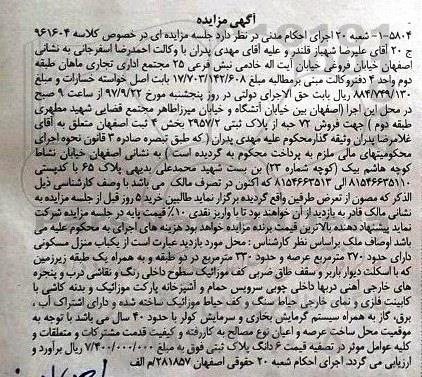 آگهی مزایده
۵۸۰۴-۱- شعبه ۲۰ اجرای احکام مدنی در نظر دارد جلسه مزایده ای در خصوص کلاسه ۹۶۱۶۰۴
ج ۲۰ آقای علیرضا شهباز قلندر و علیه آقای مهدی پدران با وکالت احمدرضا اسفرجانی به نشانی
اصفهان خیابان فروغی خیابان آیت اله خادمی نبش فرعی ۲۵ مجتمع اداری تجاری ماهان طبقه
دوم واحد ۴ دفتروکالت مبنی برمطالبه مبلغ ۱۷/۷۰۳/۱۴۲/۶۰۸ بابت اصل خواسته خسارات و مبلغ
۸۸۴/۷۴۹/۱۳۰ ریال بابت حق الاجرای دولتی در روز پنجشنبه مورخ ۹۷/۹/۲۲ از ساعت ۹ صبح
در محل این اجرا (اصفهان بین خیابان آتشگاه و خیابان میرزاطاهر مجتمع قضایی شهید مطهری
طبقه دوم ) جهت فروش ۷۲ حبه از پلاک ثبتی ۲۹۵۷/۲ بخش ۴ ثبت اصفهان متعلق به آقای
غلامرضا پدران وثیقه گذارمحکوم علیه مهدی پدران ( که طبق تبصره صادره ۳ قانون نحوه اجرای
محکومیتهای مالی ملزم به پرداخت محکوم به گردیده است ) به نشانی اصفهان خیابان نشاط
کوچه هاشم بیک (کوچه شماره ۲۳) بن بست شهید محمدعلی بدیهی پلاک ۶۵ با کدپستی
۸۱۵۴۶۶۳۵۱۱۰ الی ۸۱۵۴۶۶۳۵۱۳ که اکنون در تصرف مالک می باشد با وصف کارشناسی ذیل
الذکر که مصون از تعرض طرفین واقع گردیده برگزار نماید طالبین خرید ۵ روز قبل از جلسه مزایده به
نشانی مالک قادر به بازدید از آن خواهند بود تا با واریز نقدی ۱۰٪ قیمت پایه در جلسه مزایده شرکت
نماید پیشنهاد دهنده بالاترین قیمت برنده مزایده خواهد بود هزینه های اجرای به محکوم علیه می
باشد اوصاف ملک براساس نظر کارشناس : محل مورد بازدید عبارت است از یکباب منزل مسکونی
دارای حدود ۲۷۰ مترمربع عرصه و حدود ۳۳۰ مترمربع در دو طبقه و به همراه یک طبقه زیرزمین
که با اسکلت دیوار باربر و سقف طاق ضربی کف موزائیک سطوح داخلی رنگ و نقاشی درب و پنجره
های خارجی آهنی دربها داخلی چوبی سرویس حمام و آشپزخانه پارکت موزائیک و بدنه کاشی با
کابینت فلزی و نمای خارجی حیاط سنگ و کف حیاط موزائیک ساخته شده و دارای اشتراک آب ،
برق، گاز به همراه سیستم گرمایش بخاری و سرمایش کولر با حدود ۴۰ سال می باشد با توجه به
موقعیت محل ساخت عرصه و اعیان نوع مصالح به کاررفته و کیفیت قدمت مشترکات و متعلقات و
کلیه عوامل موثر در تصفیه قیمت ۶ دانگ پلاک ثبتی فوق به مبلغ ۷/۴۰۰/۰۰۰/۰۰۰ ریال برآورد و
ارزیابی می گردد. اجرای احکام شعبه ۲۰ حقوقی اصفهان ۲۸۱۸۵۷/م الف